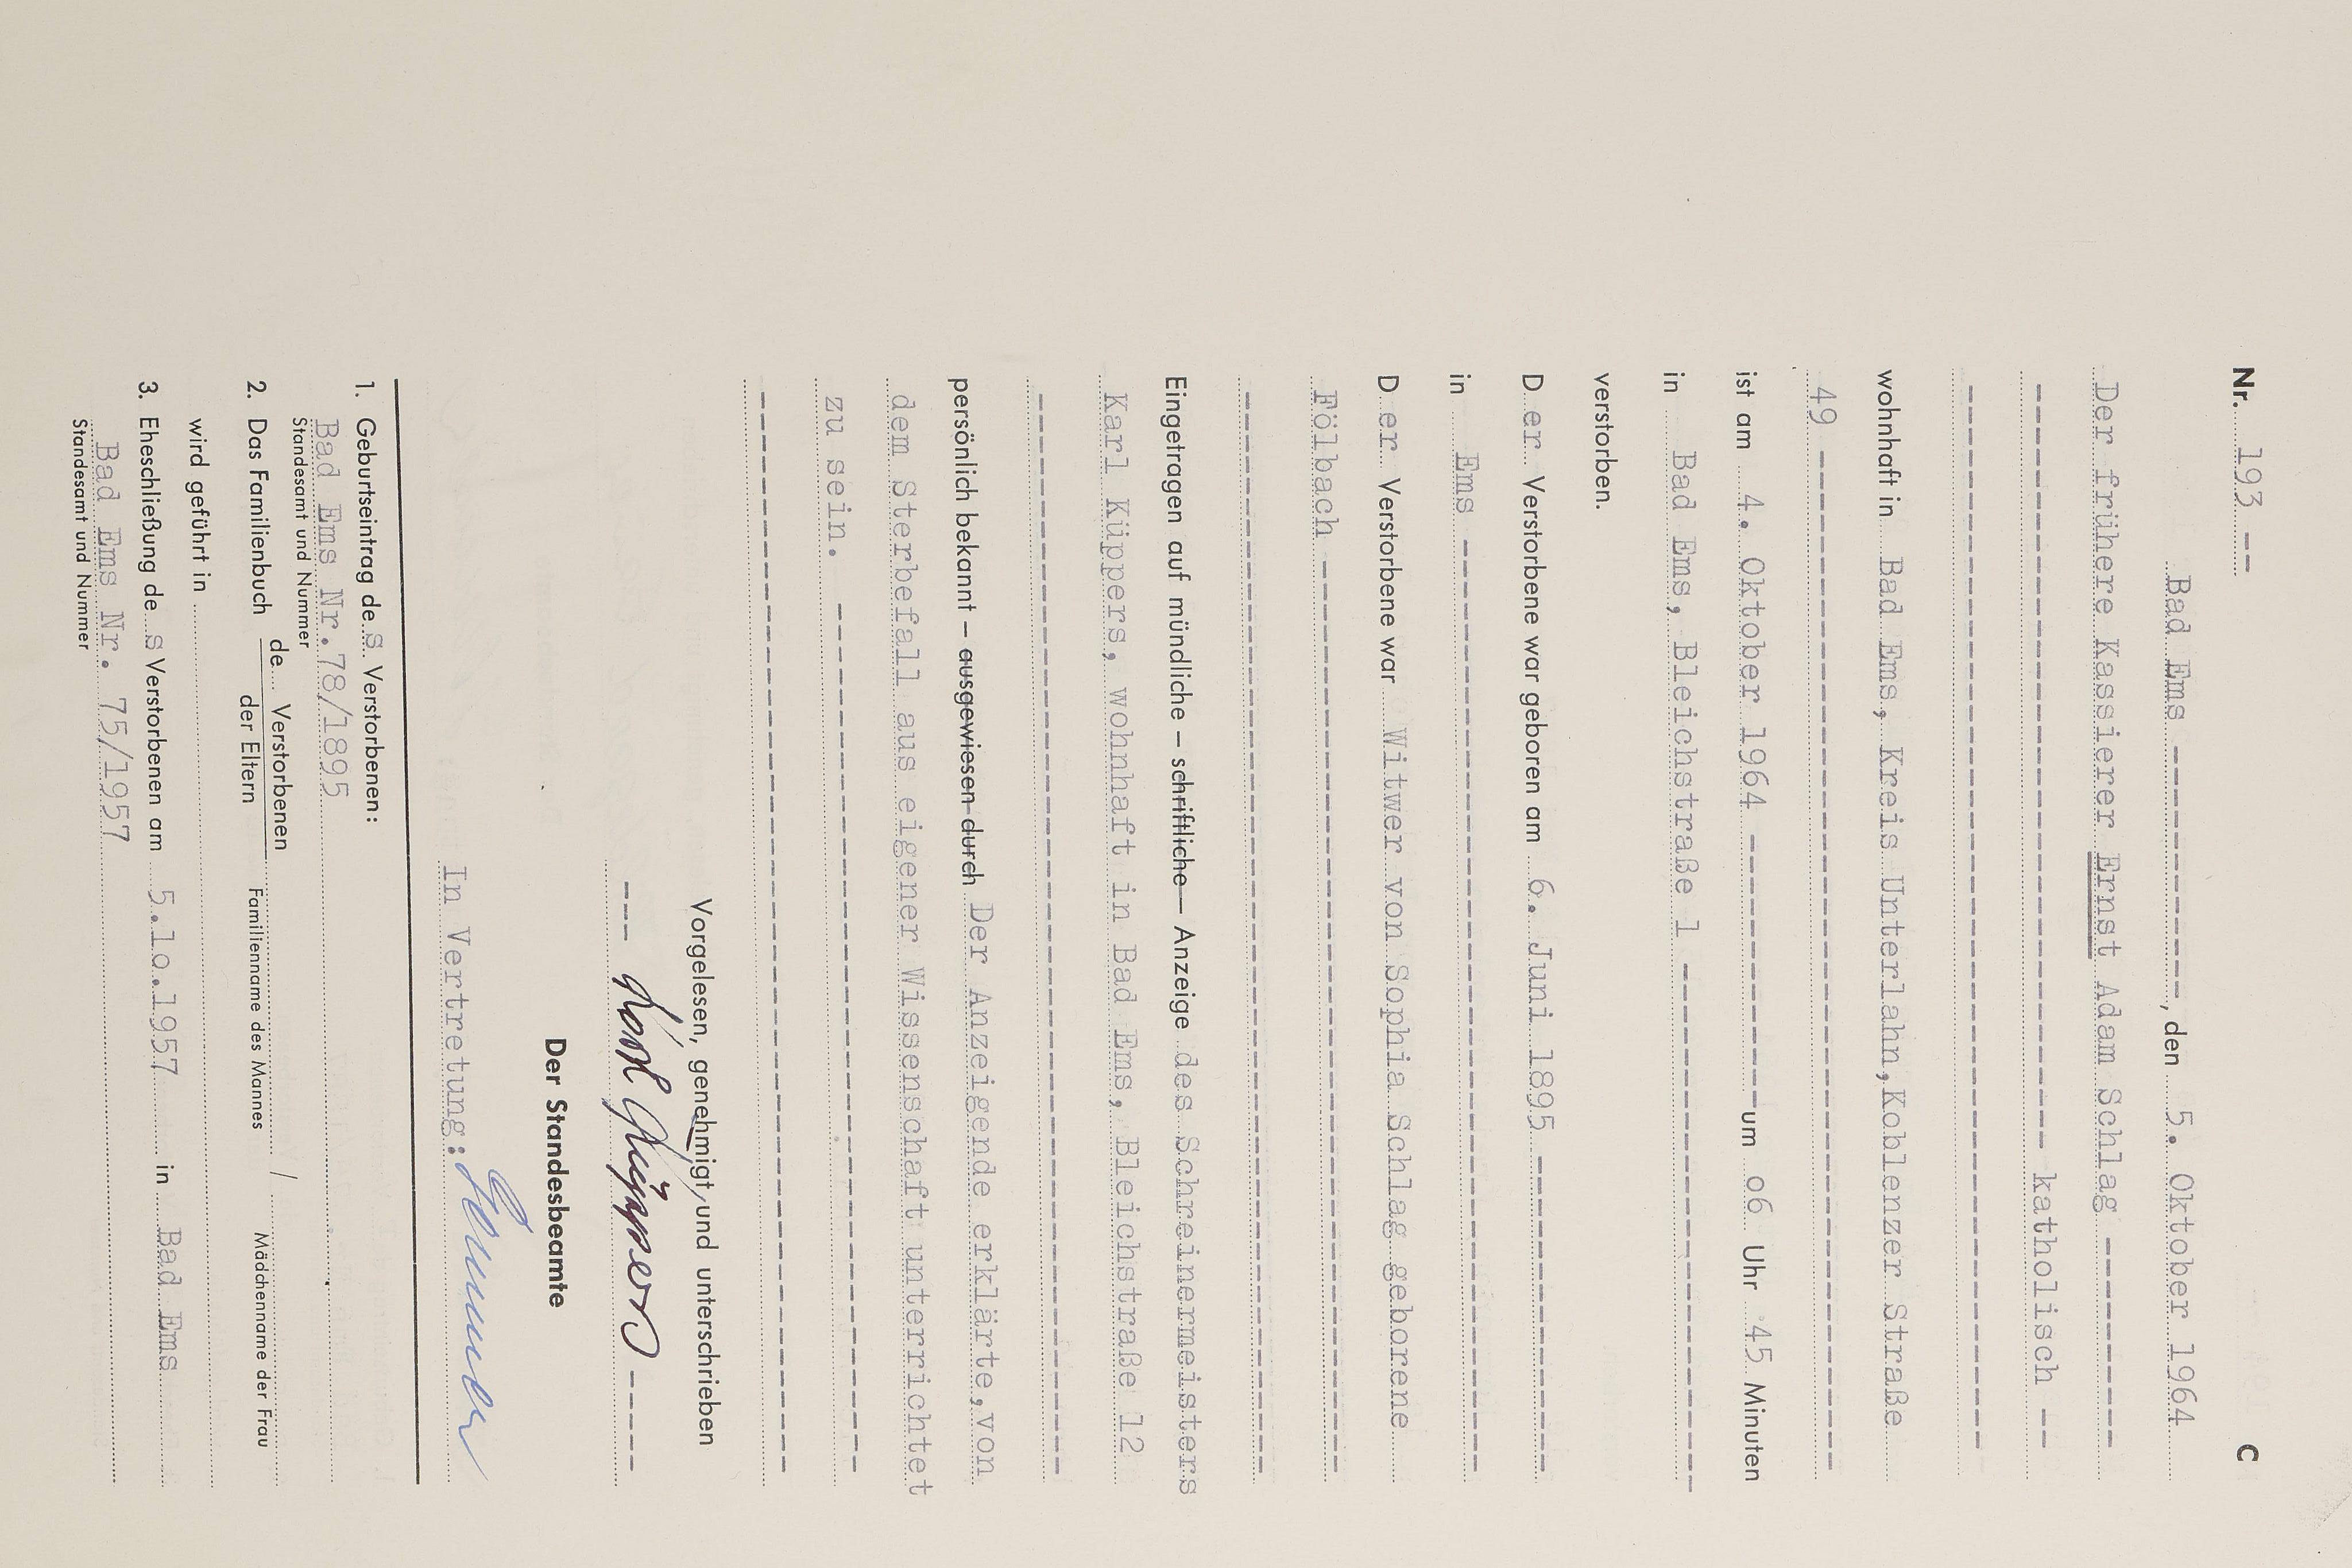 Nr. 193 -- C
Bad Ems ----------------, den 5. Oktober 1964
Der frühere Kassierer Ernst Adam Schlag -------------
------------------------------------------------ katholisch --
-------------------------------------------------------------
wohnhaft in Bad Ems, Kreis Unterlahn,Koblenzer Straße
49 ----------------------------------------------------------
ist am 4. Oktober 1964 ----------------um o6 Uhr 45 Minuten
in Bad Ems, Bleichstraße 1 --------------------------------
verstorben.
D er Verstorbene war geboren am 6. Juni 1895 ------------------
in Ems ------------------------------------------------------
D er Verstorbene war Witwer von Sophia Schlag geborene
Fölbach -----------------------------------------------------
-------------------------------------------------------------
Eingetragen auf mündliche – schriftliche – Anzeige des Schreinermeisters
Karl Küppers, wohnhaft in Bad Ems, Bleichstraße 12
-------------------------------------------------------------
persönlich bekannt – ausgewiesen durch Der Anzeigende erklärte,von
dem Sterbefall aus eigener Wissenschaft unterrichtet
zu sein. ----------------------------------------------------
-------------------------------------------------------------
Vorgelesen, genehmigt und unterschrieben
--- Karl Küppers -----
Der Standesbeamte
In Vertretung:
1. Geburtseintrag de s Verstorbenen:
Bad Ems Nr.78/1895
Standesamt und Nummer
2. Das Familienbuch de Verstorbenen
der Eltern
/
Familienname des Mannes Mädchenname der Frau
wird geführt in
3. Eheschließung de s Verstorbenen am 5.10.1957 in Bad Ems
Bad Ems Nr. 75/1957
Standesamt und Nummer